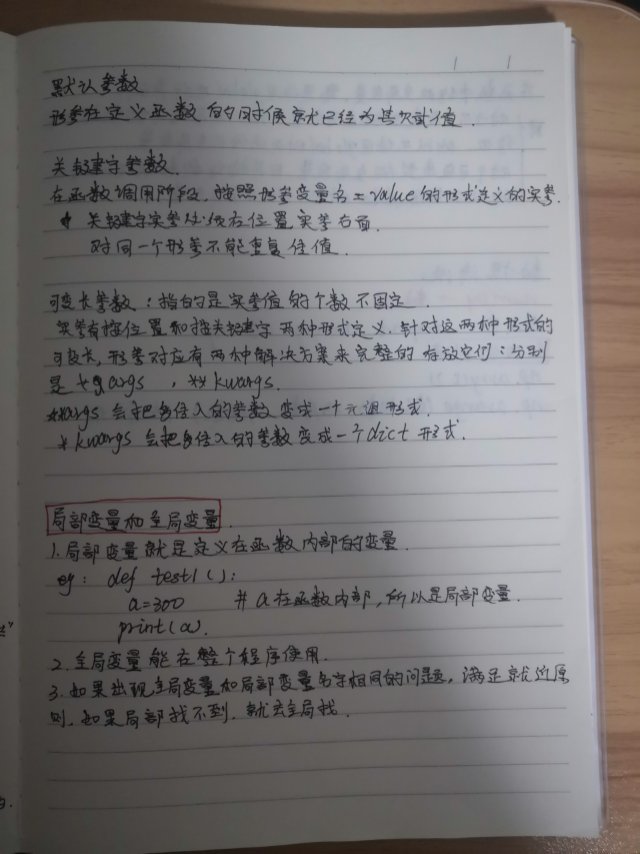 默认参数
形参在定义函数的时候就已经为其欠试值.
关键字参数.
在函数调用阶段,按照形参变量名=value的形式定义的实参.
关键字实参必须在位置实参右面.
对同一个形参不能重复传值.
可变长参数:指的是实参值的个数不固定.
实参有按位置和按关键字两种形式定义.针对这两种形式的
可变长,形参对应有两种解决方案来完整的存放它们:分别
是 *args , ** kwargs.
**args 会把多传入的参数变成一个元组形式.
* kwargs 会把多传入的参数变成一个dict 形式.
局部变量和全局变量.
1.局部变量就是定义在函数内部的变量.
eg: def test1():
a=300 # a在函数内部,所以是局部变量.
print(a).
2.全局变量能在整个程序使用.
3.如果出现全局变量和局部变量名字相同的问题,满足就近原
则,如果局部找不到.就去全局找.